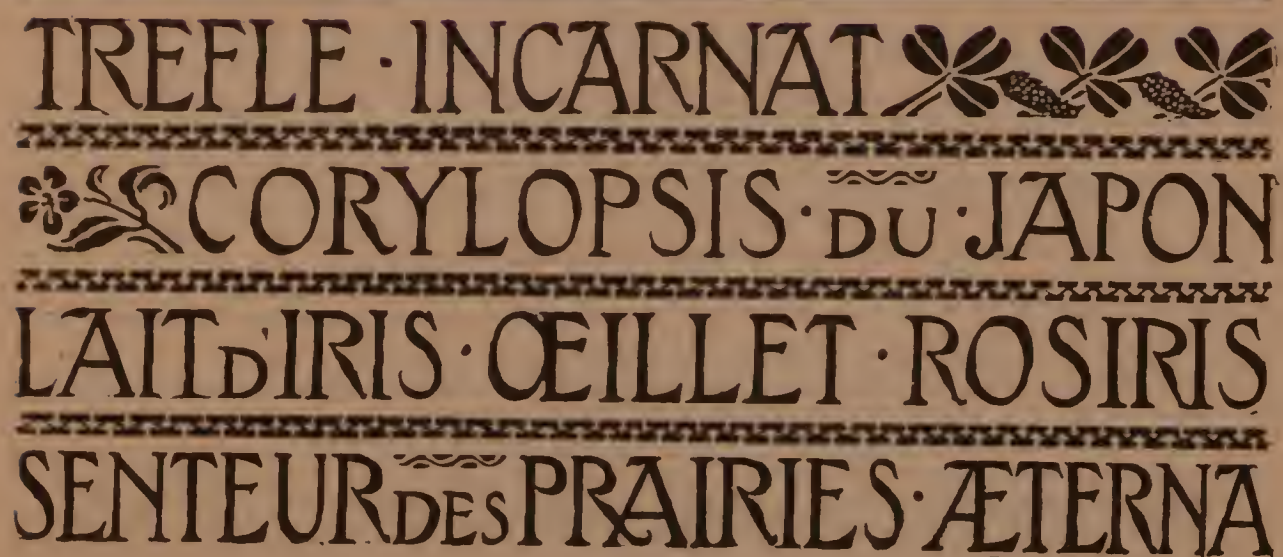 TREFLE · INCARNAT
CORYLOPSIS · DU · JAPON
LAIT D'IRIS · ŒILLET · ROSIRIS
SENTEUR DES PRAIRIES · ÆTERNA